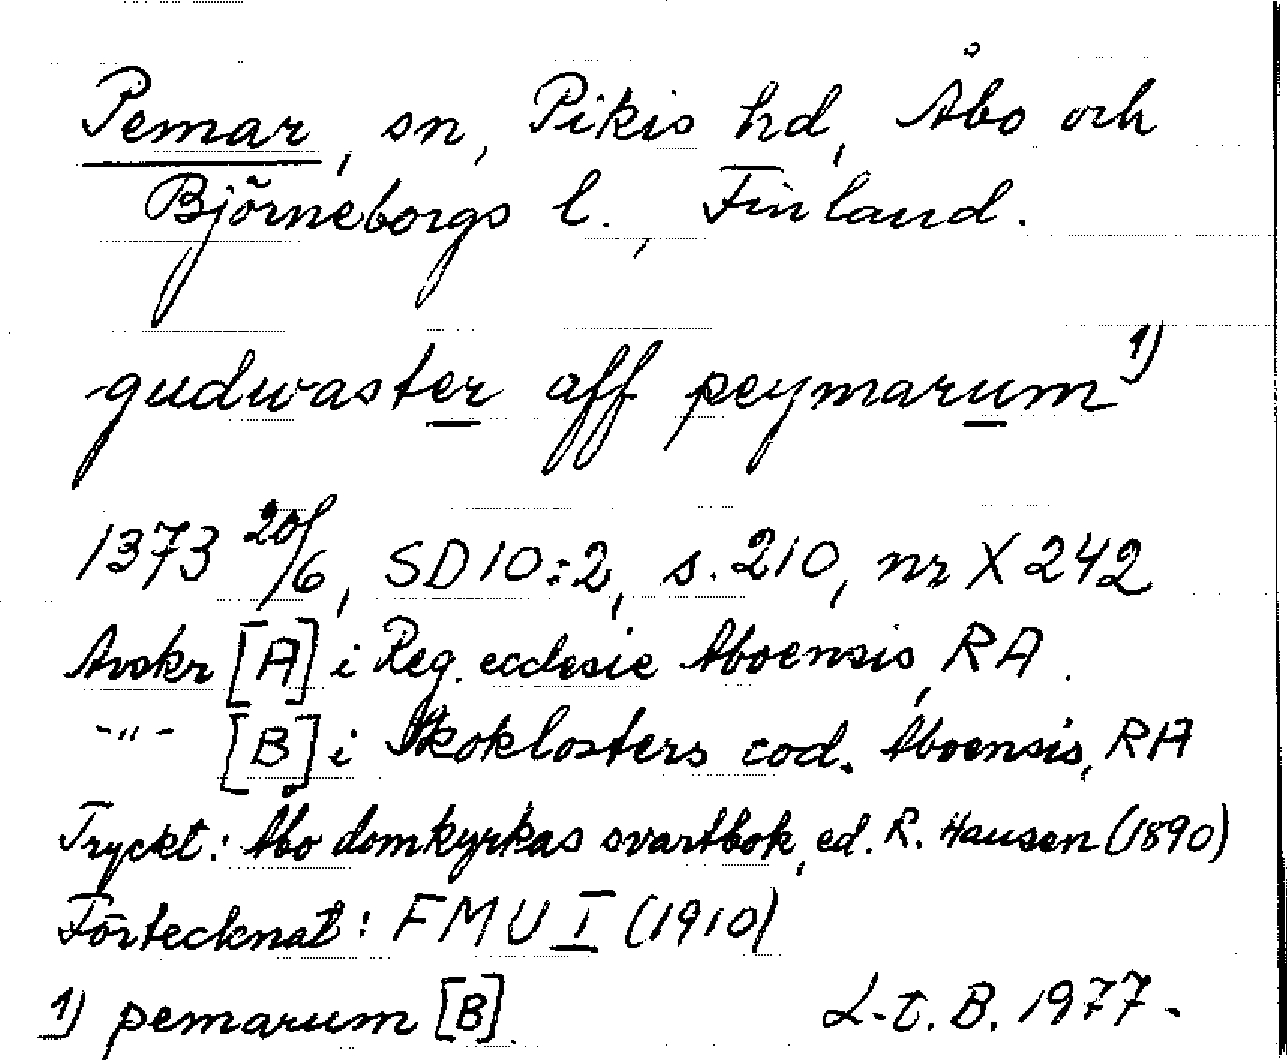 Pemar, sn, Pikis hd, Åbo och
Björneborgs l., Finland.
gudwaster aff peymarum 1)
1373 20/6, SD 10:2, s. 210, nr X 242
Avskr [A] i Reg. ecclesie Aboensis, RA.
-"- [B] i Skoklosters cod. Aboensis, RA
Tryckt: Åbo domkyrkas svartbok, ed. R. Hausen (1890)
Förtecknat: FMU I (1910)
1) pemarum [B].
L-t. B. 1977.-